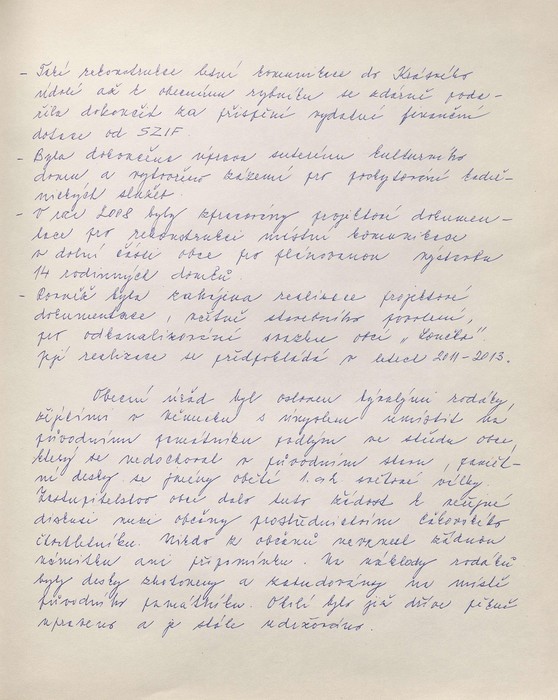 - Také rekonstrukce lesní komunikace do Krásného
údolí až k obecnímu rybníku se zdárně poda-
řila dokončit za přispění vydatné finanční
dotace od SZIF.
- Byla dokončena úprava suterénu kulturního
domu a vytvořeno zázemí pro poskytování kadeř-
nických služeb.
- V roce 2008 byly zpracovány projektové dokumen-
tace pro rekonstrukci místní komunikace
v dolní části obce pro plánovanou výstavbu
14 rodinných domků.
- Rovněž byla zahájena realizace projektové
dokumentace, včetně stavebního povolení,
pro odkanalizování svazku obcí „Loučka".
Její realizace se předpokládá v letech 2011-2013.
Obecní úřad byl osloven bývalými rodáky,
žijícími v Německu s úmyslem umístit na
původním památníku padlým ve středu obce,
který se nedochoval v původním stavu, pamět-
ní desky se jmény obětí 1. a 2. světové války.
Zastupitelstvo obce dalo tuto žádost k veřejné
diskusi mezi občany prostřednictvím
čtvrtletníku. Nikdo z občanů nevznesl žádnou
námitku ani připomínku. Na náklady rodáků
byly desky zhotoveny a zabudovány na místě
původního památníku. Okolí bylo již dříve pěkně
upraveno a je stále udržováno.